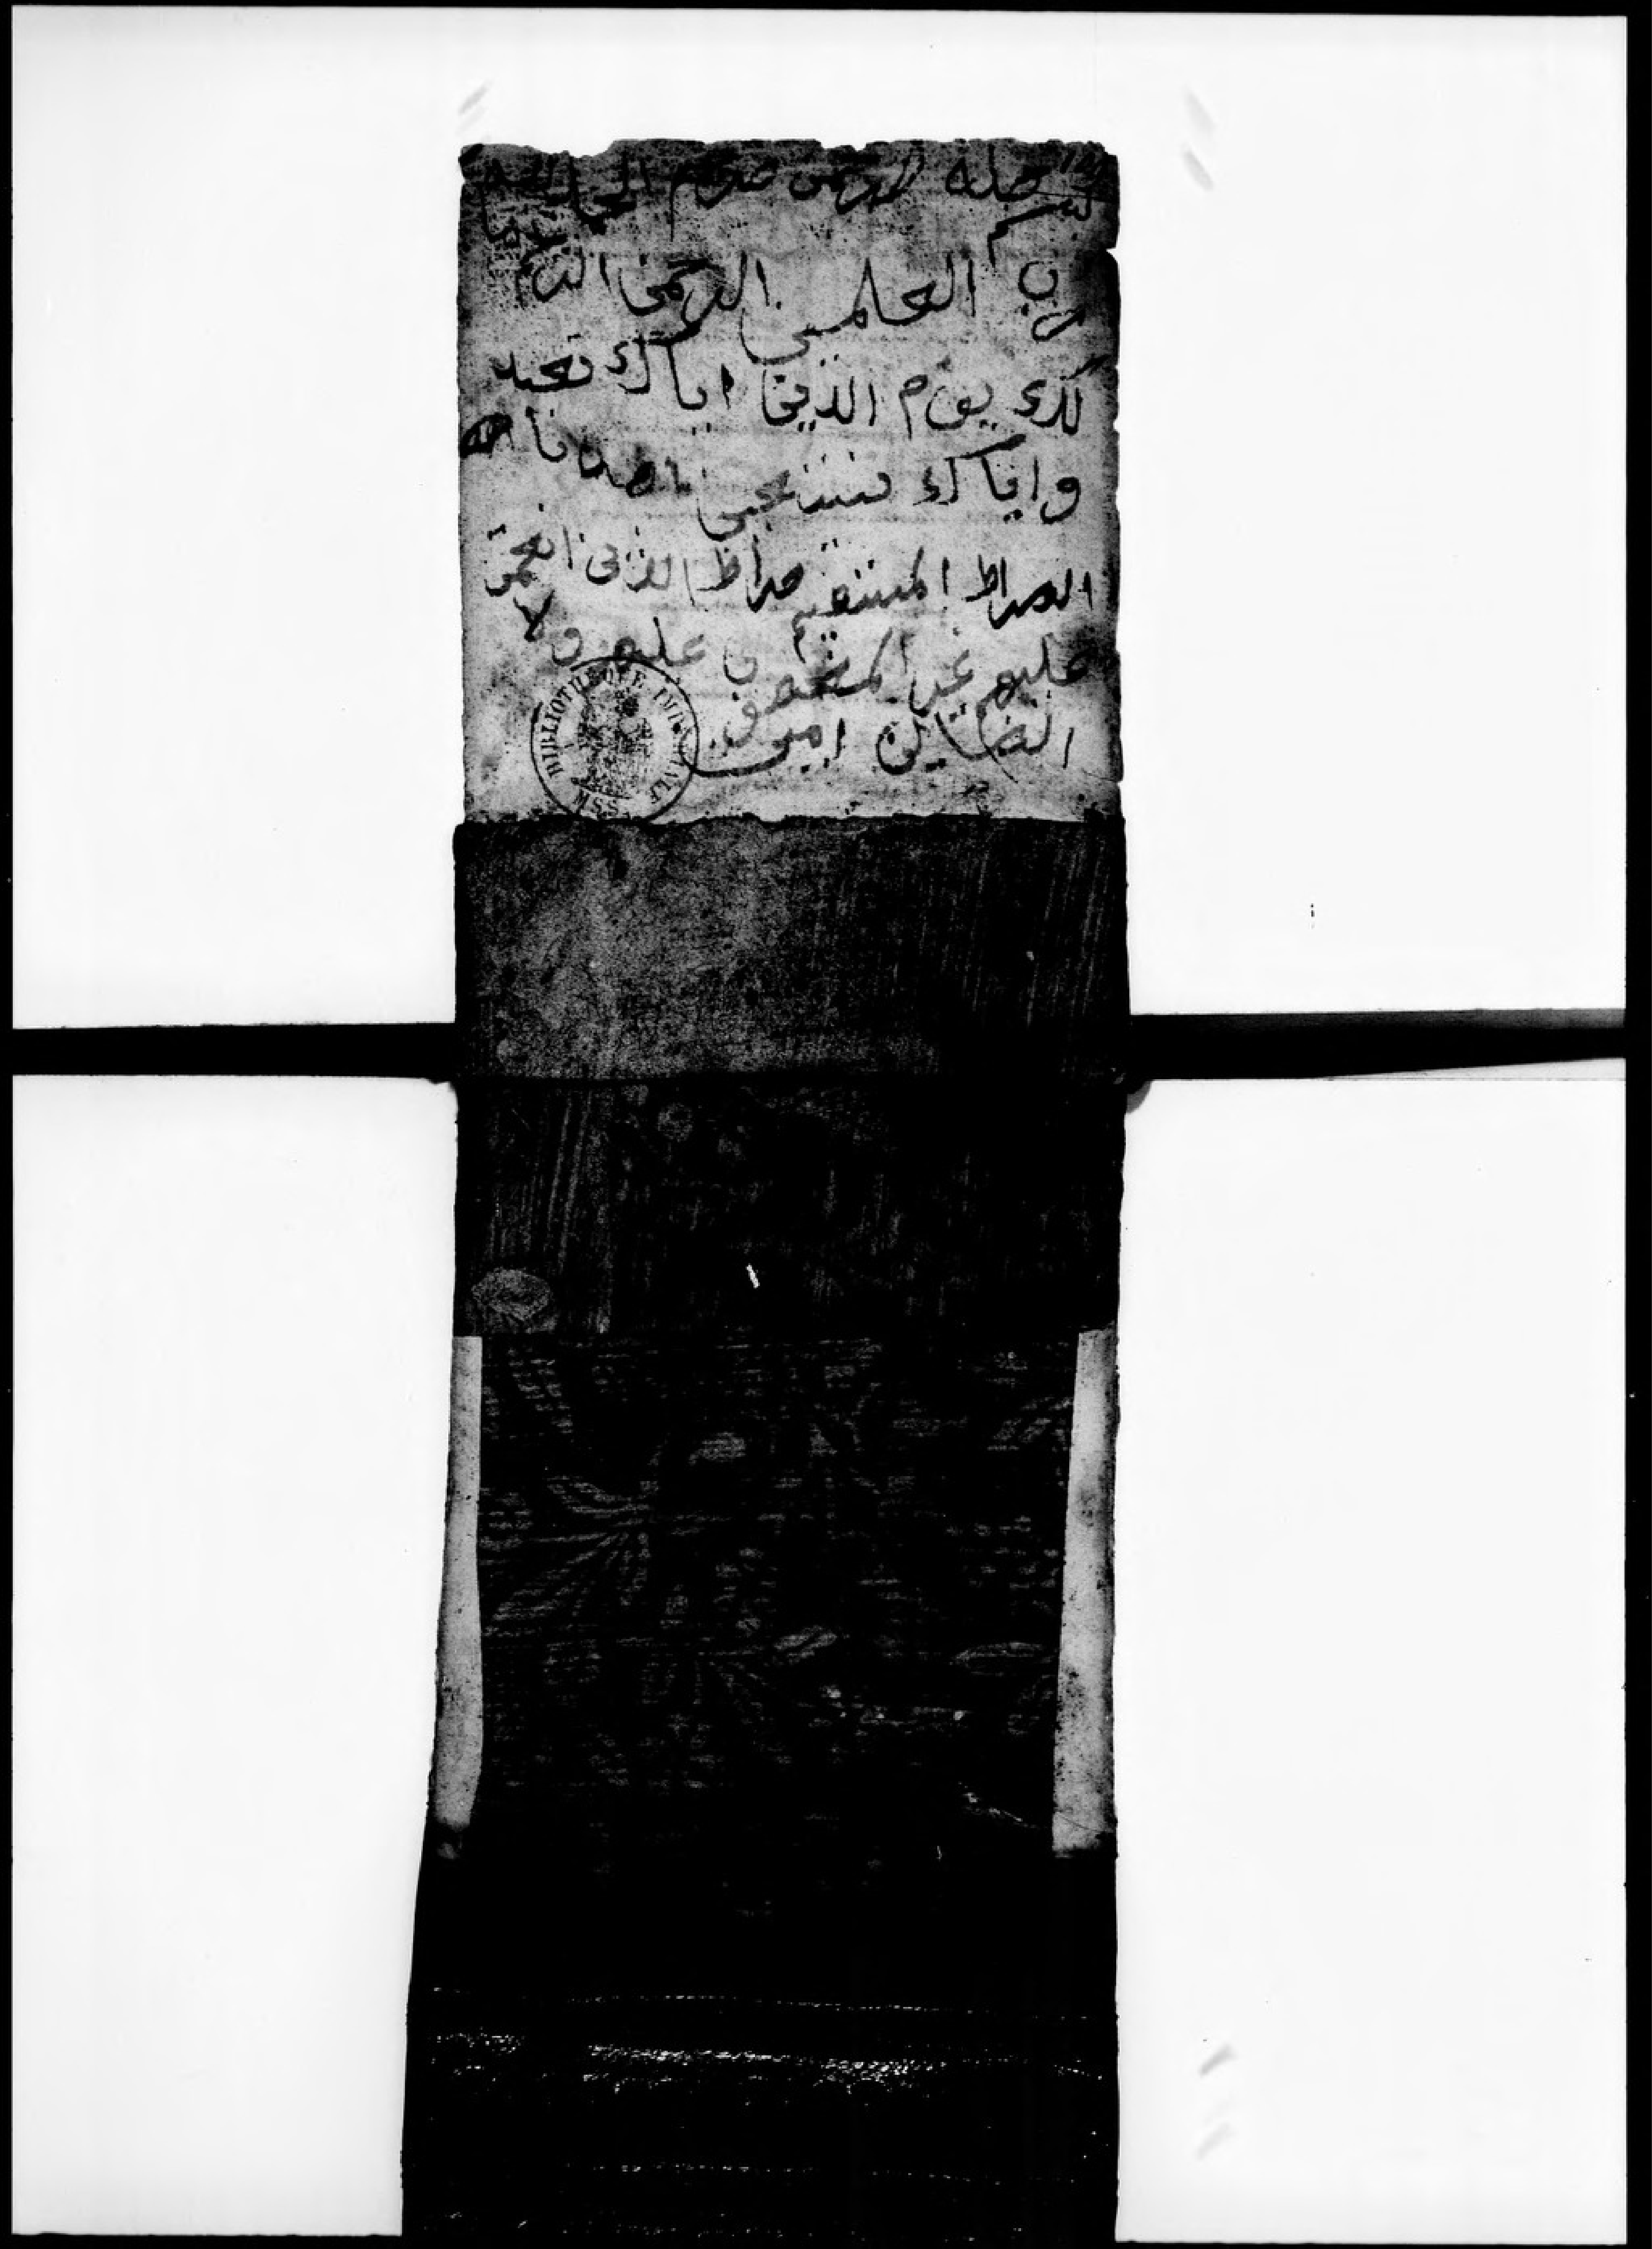 بسم
رب العلمين الرحمن الرحيم
ملك يوم الدين اياك نعبد
واياك نستعين اهدنا
الصراط المستقيم صراط الذين انعمت
عليهم غير المغضوب عليهم ولا
الضالين امين
BIBLIOTHEQUE IMPERIALE MSS